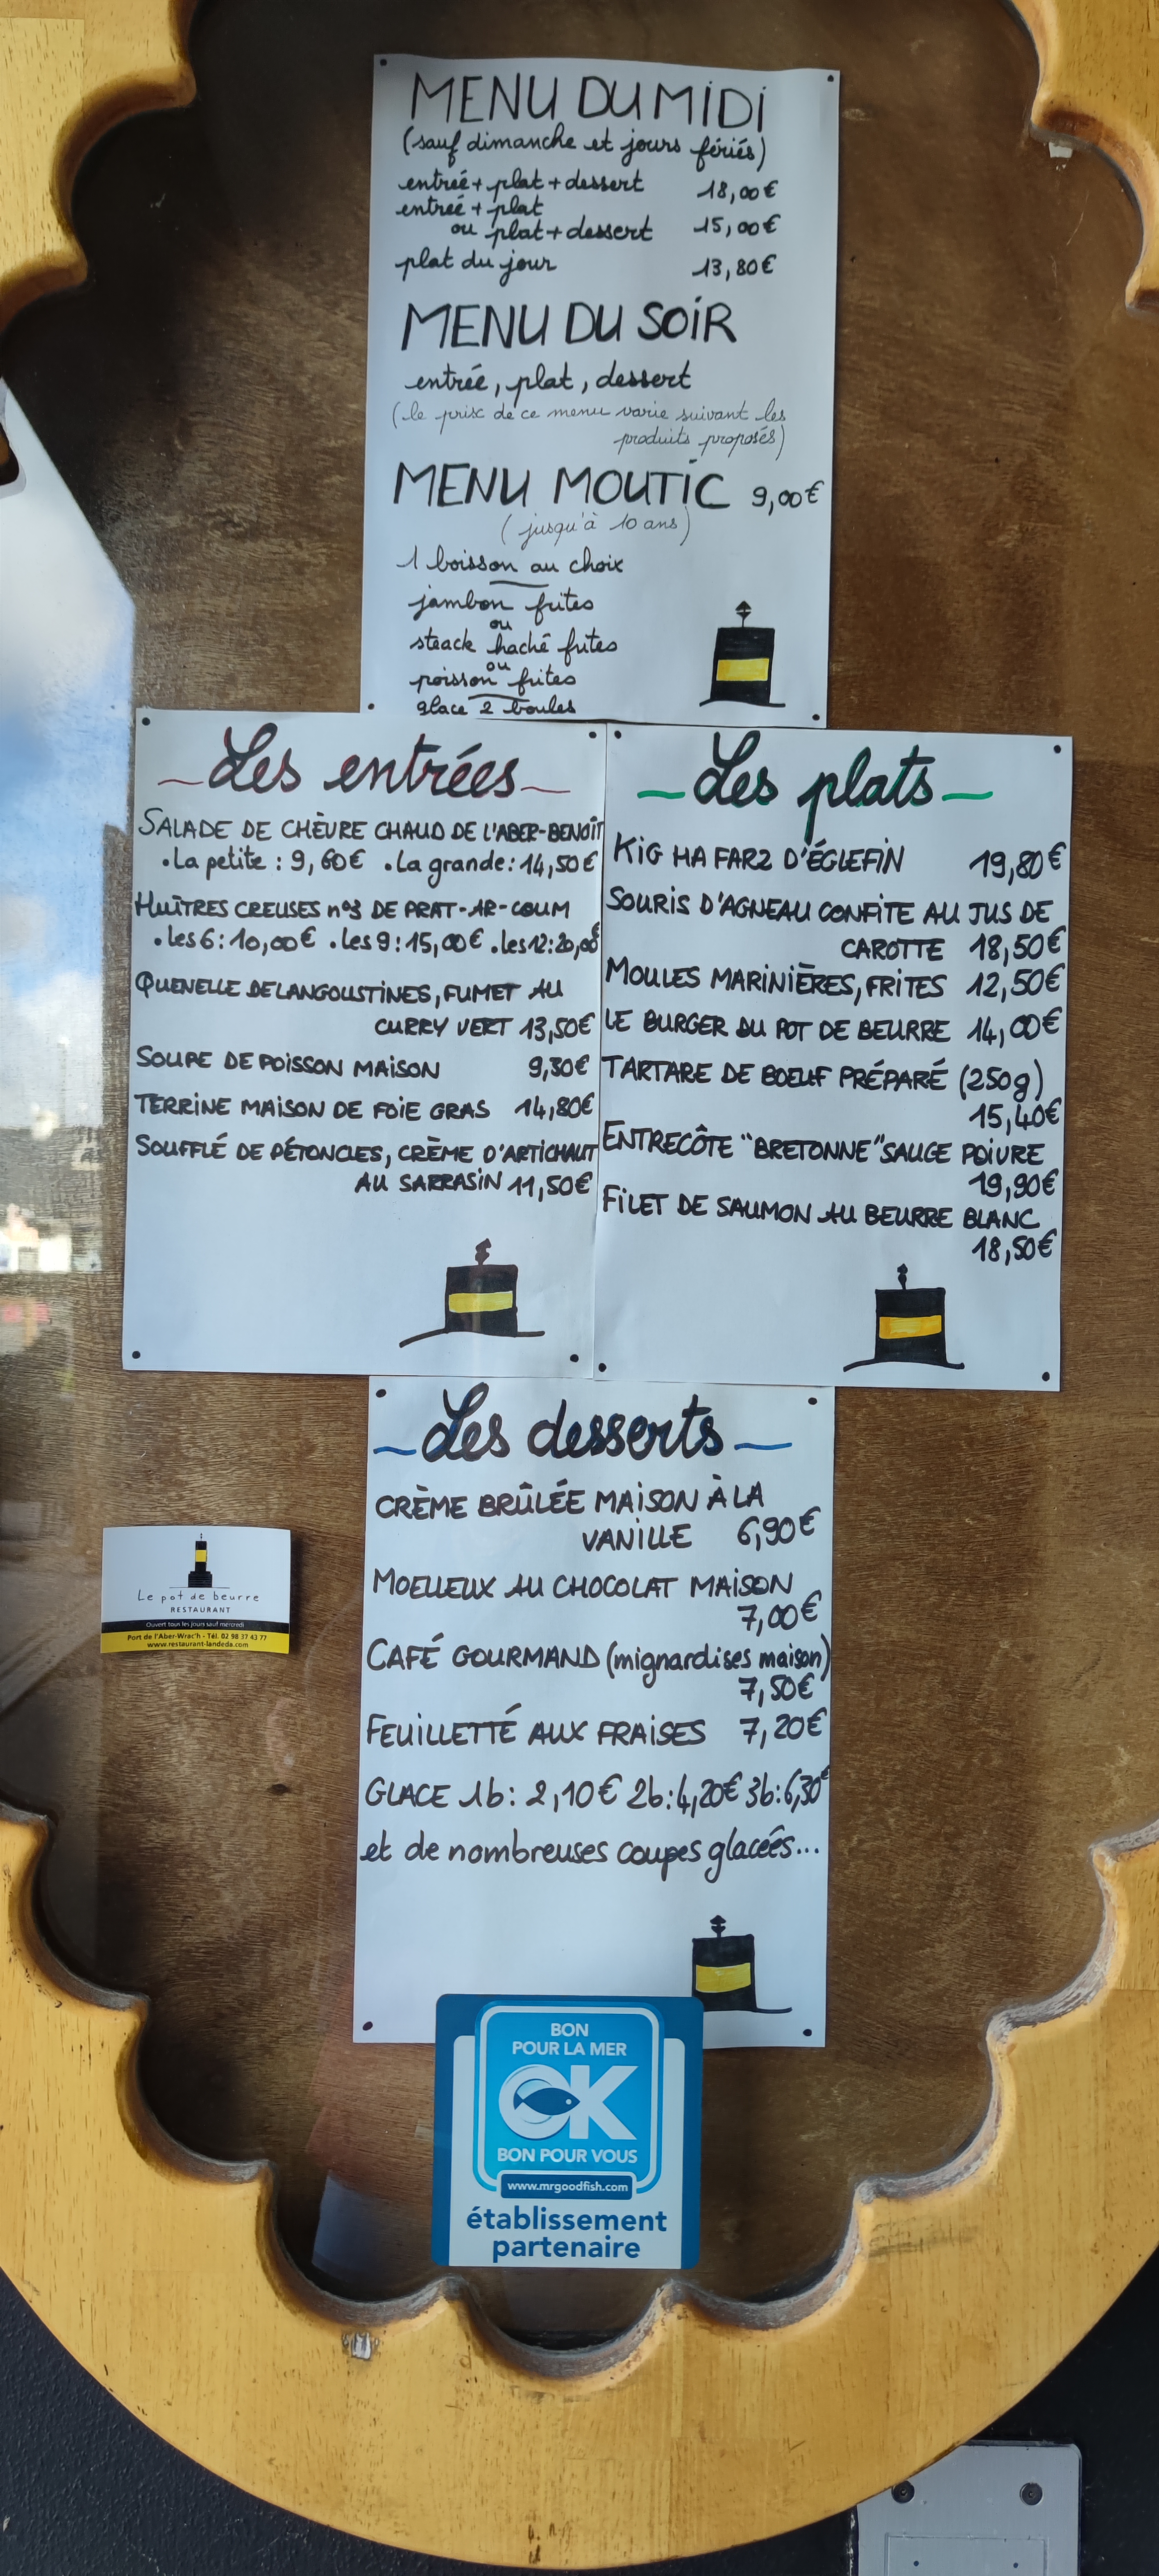 MENU DU MIDI
(sauf dimanche et jours fériés)
entrée + plat + dessert 18,00€
entrée + plat
ou plat + dessert 15,00€
plat du jour 13,80€
MENU DU SOIR
entrée, plat, dessert
(le prix de ce menu varie suivant les
produits proposés)
MENU MOUTIC 9,00€
(jusqu'à 10 ans)
1 boisson au choix
jambon frites
ou
steack haché frites
ou
poisson frites
glace 2 boules
Les entrées
SALADE DE CHÈVRE CHAUD DE L'ABER-BENOÎT
• La petite : 9,60€ • La grande : 14,50€
HUÎTRES CREUSES n°3 DE PRAT-AR-COUM
• Les 6 : 10,00€ • Les 9 : 15,00€ • Les 12 : 20,00€
QUENELLE DE LANGOUSTINES, FUMET AU
CURRY VERT 13,50€
SOUPE DE POISSON MAISON 9,30€
TERRINE MAISON DE FOIE GRAS 14,80€
SOUFFLÉ DE PÉTONCLES, CRÈME D'ARTICHAUT
AU SARRASIN 11,50€
Les plats
KIG HA FARZ D'ÉGLEFIN 19,80€
SOURIS D'AGNEAU CONFITE AU JUS DE
CAROTTE 18,50€
MOULES MARINIÈRES, FRITES 12,50€
LE BURGER DU POT DE BEURRE 14,00€
TARTARE DE BOEUF PRÉPARÉ (250g)
15,40€
ENTRECÔTE "BRETONNE" SAUCE POIVRE
19,90€
FILET DE SAUMON AU BEURRE BLANC
18,50€
Les desserts
CRÈME BRÛLÉE MAISON À LA
VANILLE 6,90€
MOELLEUX AU CHOCOLAT MAISON
7,00€
CAFÉ GOURMAND (mignardises maison)
7,50€
FEUILLETTÉ AUX FRAISES 7,20€
GLACE 1b : 2,10€ 2b : 4,20€ 3b : 6,30€
et de nombreuses coupes glacées...
Le pot de beurre
RESTAURANT
Ouvert tous les jours sauf mercredi
Port de l'Aber-Wrac'h - Tél. 02 98 37 43 77
www.restaurant-landeda.com
BON
POUR LA MER
OK
BON POUR VOUS
www.mrgoodfish.com
établissement
partenaire